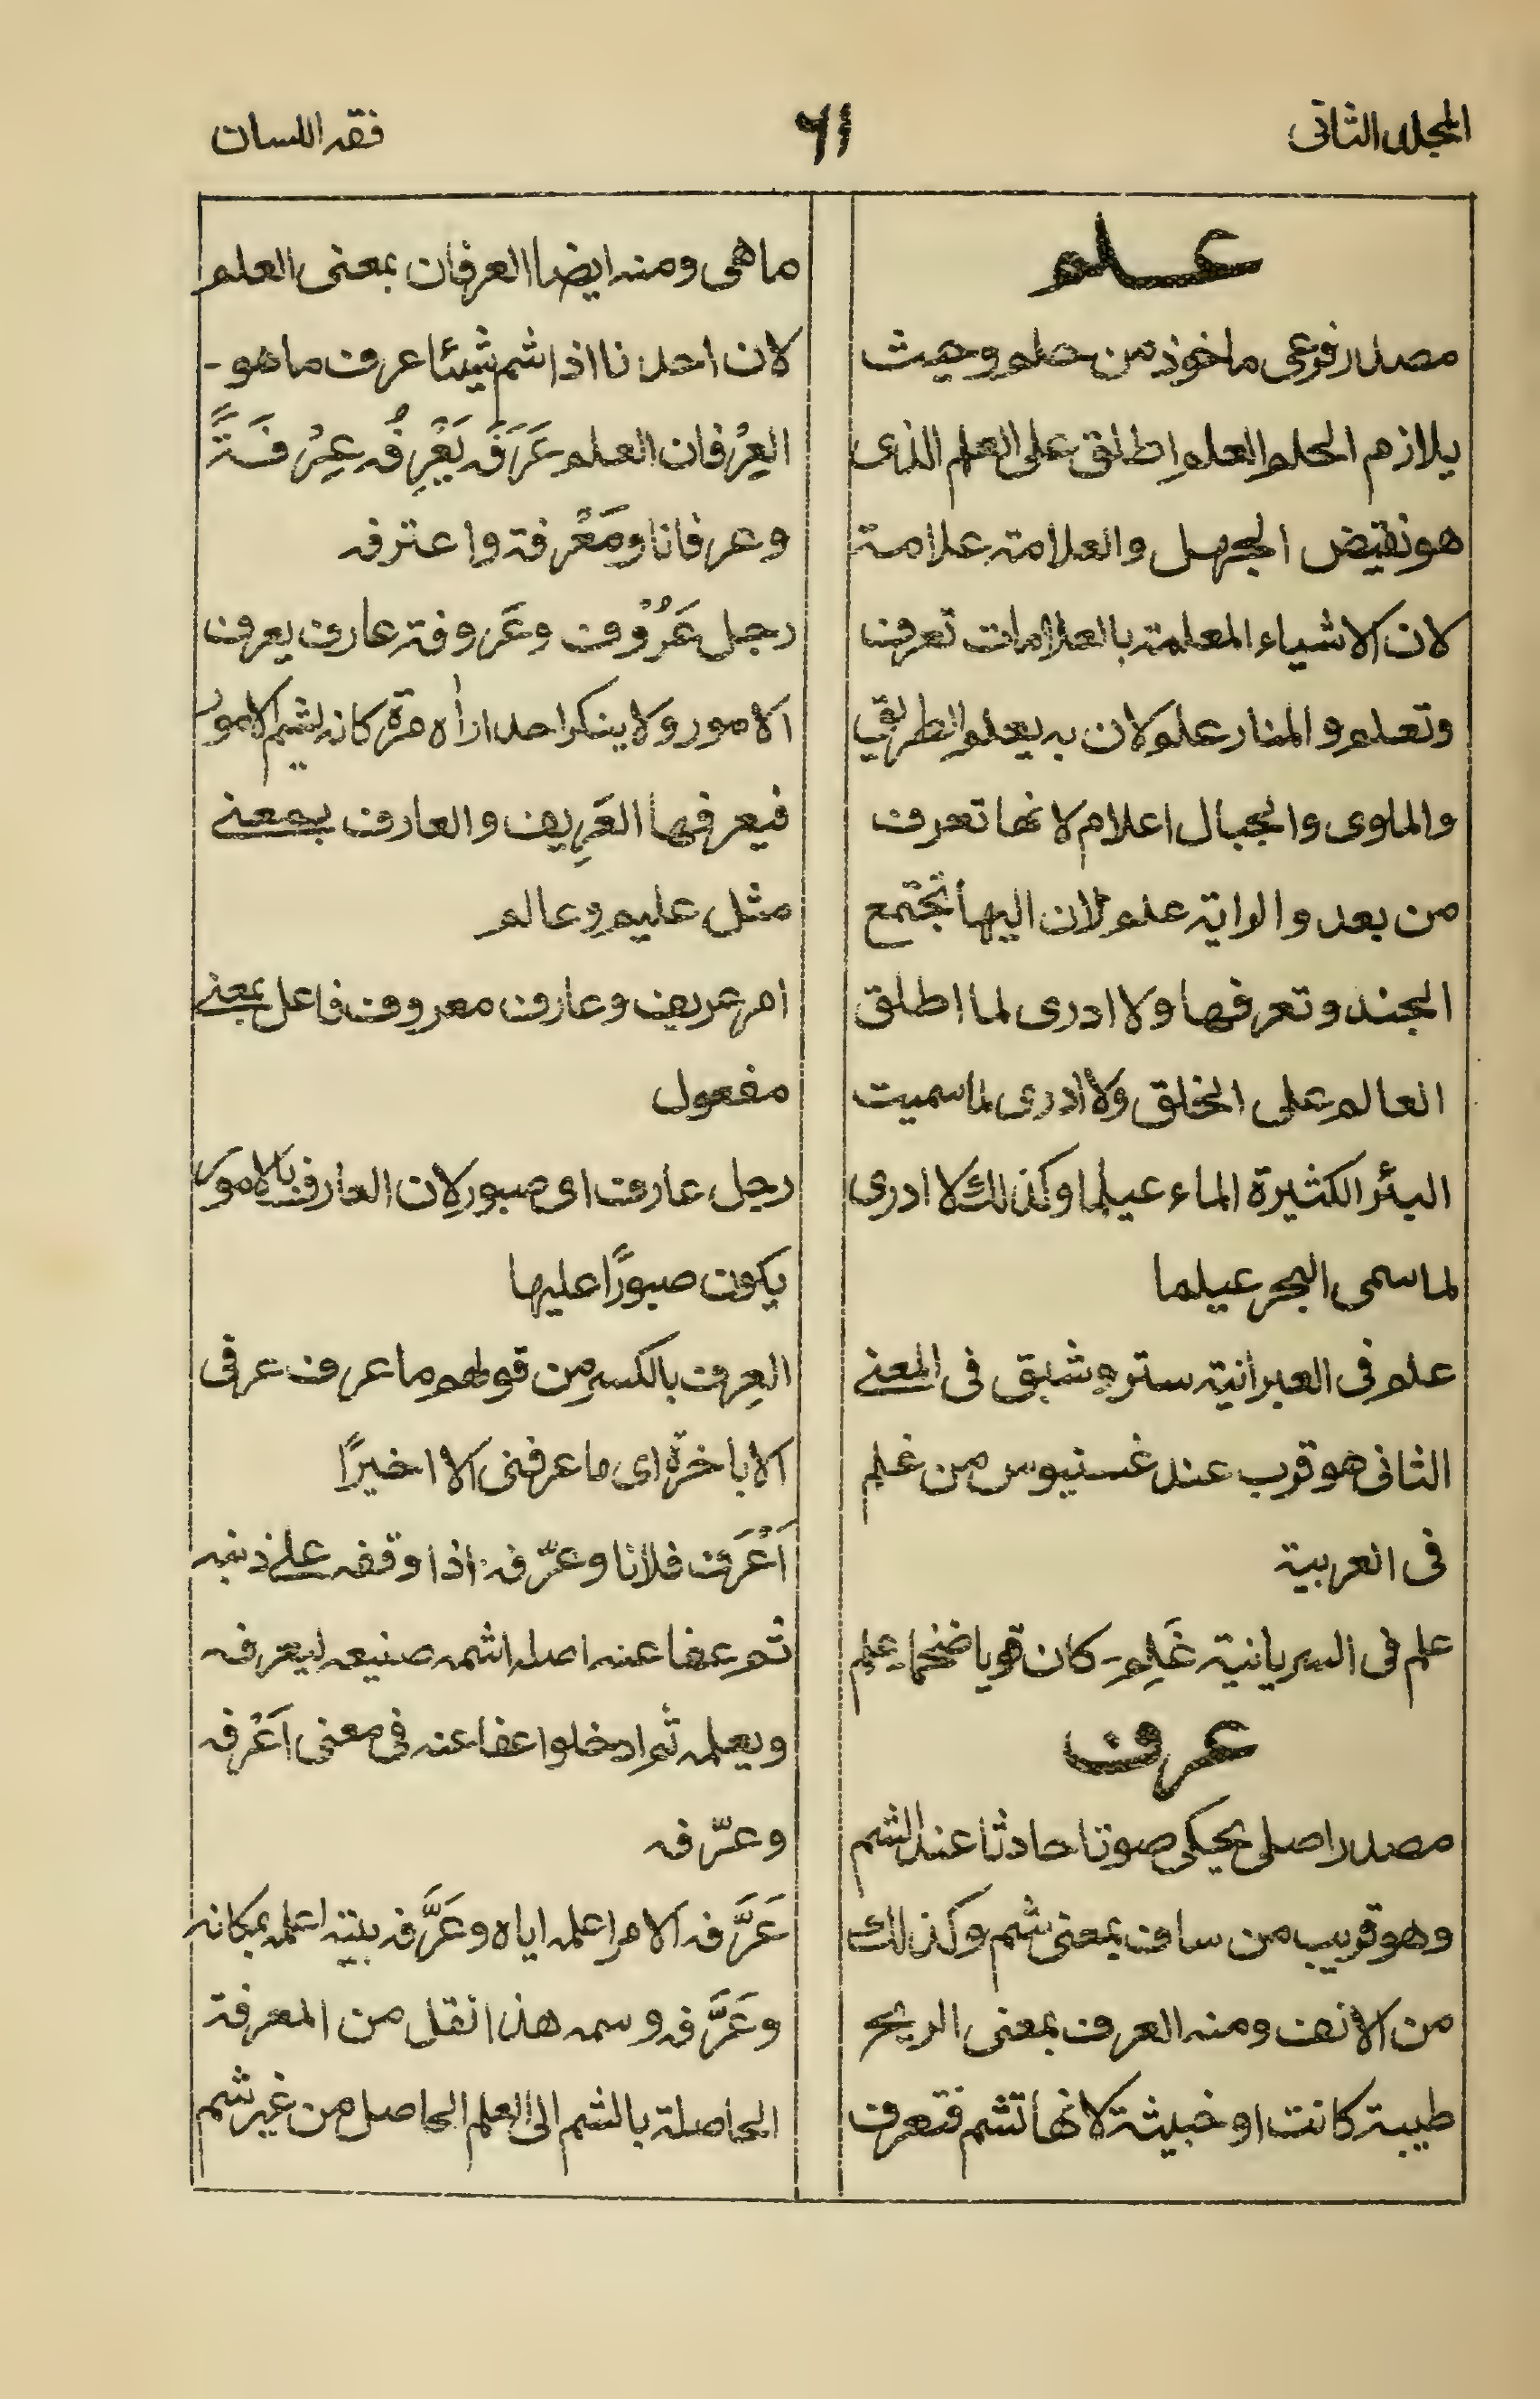 المجلد الثانى
٦١
فقه اللسان
علم
مصدر فرعى ماخوذ من حلم وحيث
يلازم الحلم العلم اطلق على العلم الذى
هو نقيض الجهل والعلامة علامة
لان الاشياء المعلمة بالعلامات تعرف
وتعلم والمنار علم لان به يعلم الطريق
والملوى والجبال اعلام لانها تعرف
من بعد والراية علم لان اليها تجتمع
الجند وتعرفها ولا ادرى لما اطلق
العالم على الخلق ولا ادرى لما سميت
البئر الكثيرة الماء عيلما وكذلك لا ادرى
لما سمى البحر عيلما
علم فى العبرانية ستر وشبق فى المعنى
الثانى هو قرب عند غسنيوس من غلم
فى العربية
علم فى السريانية غَلِم - كان قويا ضخما علم
عرف
مصدر اصلى يحكى صوتا حادثا عند الشم
وهو قريب من ساف بمعنى شم وكذلك
من الانف ومنه العرف بمعنى الريح
طيبة كانت او خبيثة لانها تشم فتعرف
ما هى ومنه ايضا العرفان بمعنى العلم
لان احدنا اذا شم شيئا عرف ما هو -
العِرْفان العلم عَرَفَه يَعْرِفُه عِرْفَةً
وعرفانا ومَعْرفة واعترفه
رجل عَرُوْف وعَروفة عارف يعرف
الامور ولا ينكر احدا رأه مرة كانه يشم الامور
فيعرفها العَرِيف والعارف بمعنى
مثل عليم وعالم
امر عريف وعارف معروف فاعل بمعنى
مفعول
رجل عارف اى صبور لان العارف بالامور
يكون صبورًا عليها
العِرف بالكسر من قولهم ما عرف عرفى
الا باخرة اى ما عرفنى الا اخيرًا
اَعْرَف فلانا وعرّفه اذا وقفه على ذنبه
ثم عفا عنه اصله اشمه صنيعه ليعرفه
ويعلمه ثم ادخلوا عفا عنه فى معنى اَعْرفه
وعرّفه
عَرَّفه الامر اعلمه اياه وعَرَّفه بيته اعلمه بمكانه
وعَرَّفه وسمه هذا نقل من المعرفة
الحاصلة بالشم الى العلم الحاصل من غير شم